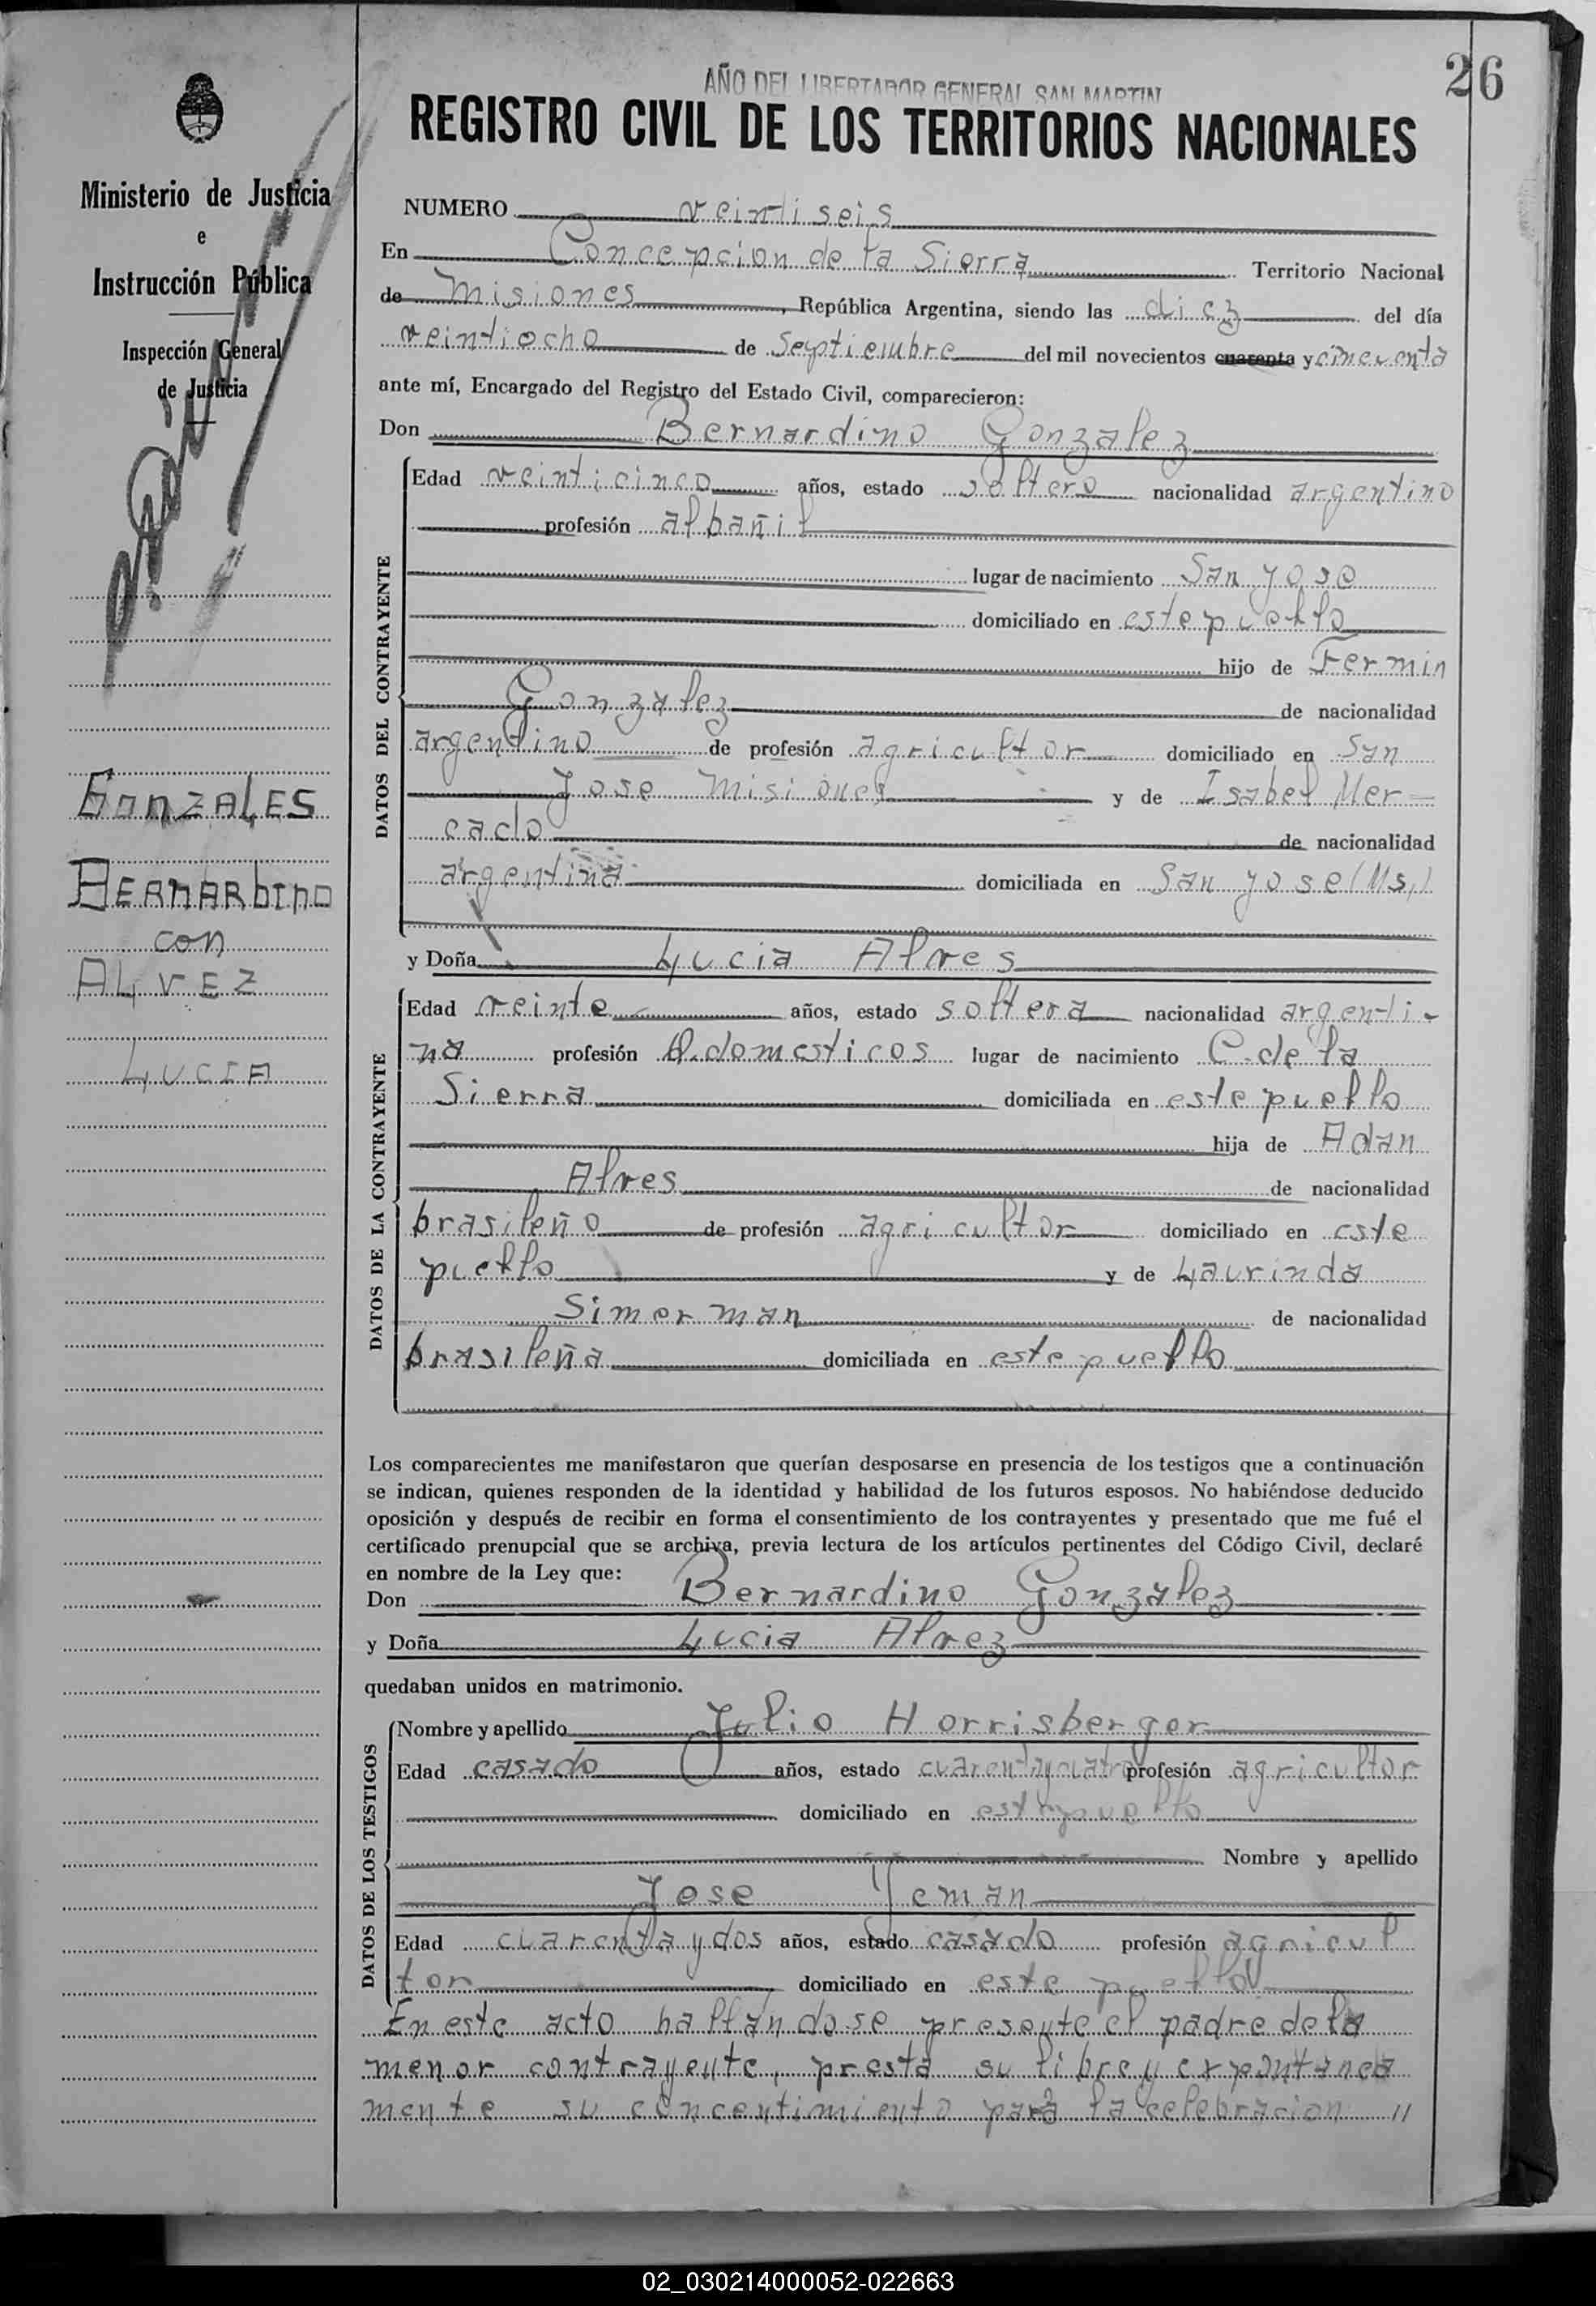 26
AÑO DEL LIBERTADOR GENERAL SAN MARTIN
REGISTRO CIVIL DE LOS TERRITORIOS NACIONALES
Ministerio de Justicia
e
Instrucción Pública
Inspección General
de Justicia
GONZALES
BERNARDINO
con
ALVEZ
LUCIA
NUMERO veintiseis
En Concepcion de la Sierra Territorio Nacional
de Misiones, República Argentina, siendo las diez del día
veintiocho de Septiembre del mil novecientos cuarenta y cincuenta
ante mí, Encargado del Registro del Estado Civil, comparecieron:
Don Bernardino Gonzalez
DATOS DEL CONTRAYENTE
Edad veinticinco años, estado soltero nacionalidad argentino
profesión albañil
lugar de nacimiento San Jose
domiciliado en este pueblo
hijo de Fermin
Gonzalez de nacionalidad
argentino de profesión agricultor domiciliado en San
Jose Misiones y de Isabel Mer-
cado de nacionalidad
argentina domiciliada en San Jose (Ms,)
y Doña Lucia Alves
DATOS DE LA CONTRAYENTE
Edad veinte años, estado soltera nacionalidad argenti-
na profesión Q. domesticos lugar de nacimiento C. de la
Sierra domiciliada en este pueblo
hija de Adan
Alves de nacionalidad
brasileño de profesión agricultor domiciliado en este
pueblo y de Laurinda
Simerman de nacionalidad
brasileña domiciliada en este pueblo
Los comparecientes me manifestaron que querían desposarse en presencia de los testigos que a continuación
se indican, quienes responden de la identidad y habilidad de los futuros esposos. No habiéndose deducido
oposición y después de recibir en forma el consentimiento de los contrayentes y presentado que me fué el
certificado prenupcial que se archiva, previa lectura de los artículos pertinentes del Código Civil, declaré
en nombre de la Ley que:
Don Bernardino Gonzalez
y Doña Lucia Alvez
quedaban unidos en matrimonio.
DATOS DE LOS TESTIGOS
Nombre y apellido Julio Horrisberger
Edad casado años, estado cuarentaycuatro profesión agricultor
domiciliado en este pueblo
Nombre y apellido
Jose Yeman
Edad cuarenta y dos años, estado casado profesión agricul
tor domiciliado en este pueblo
En este acto hallandose presente el padre de la
menor contrayente, presta su libre y expontanea
mente su concentimiento para la celebracion //
02_030214000052-022663